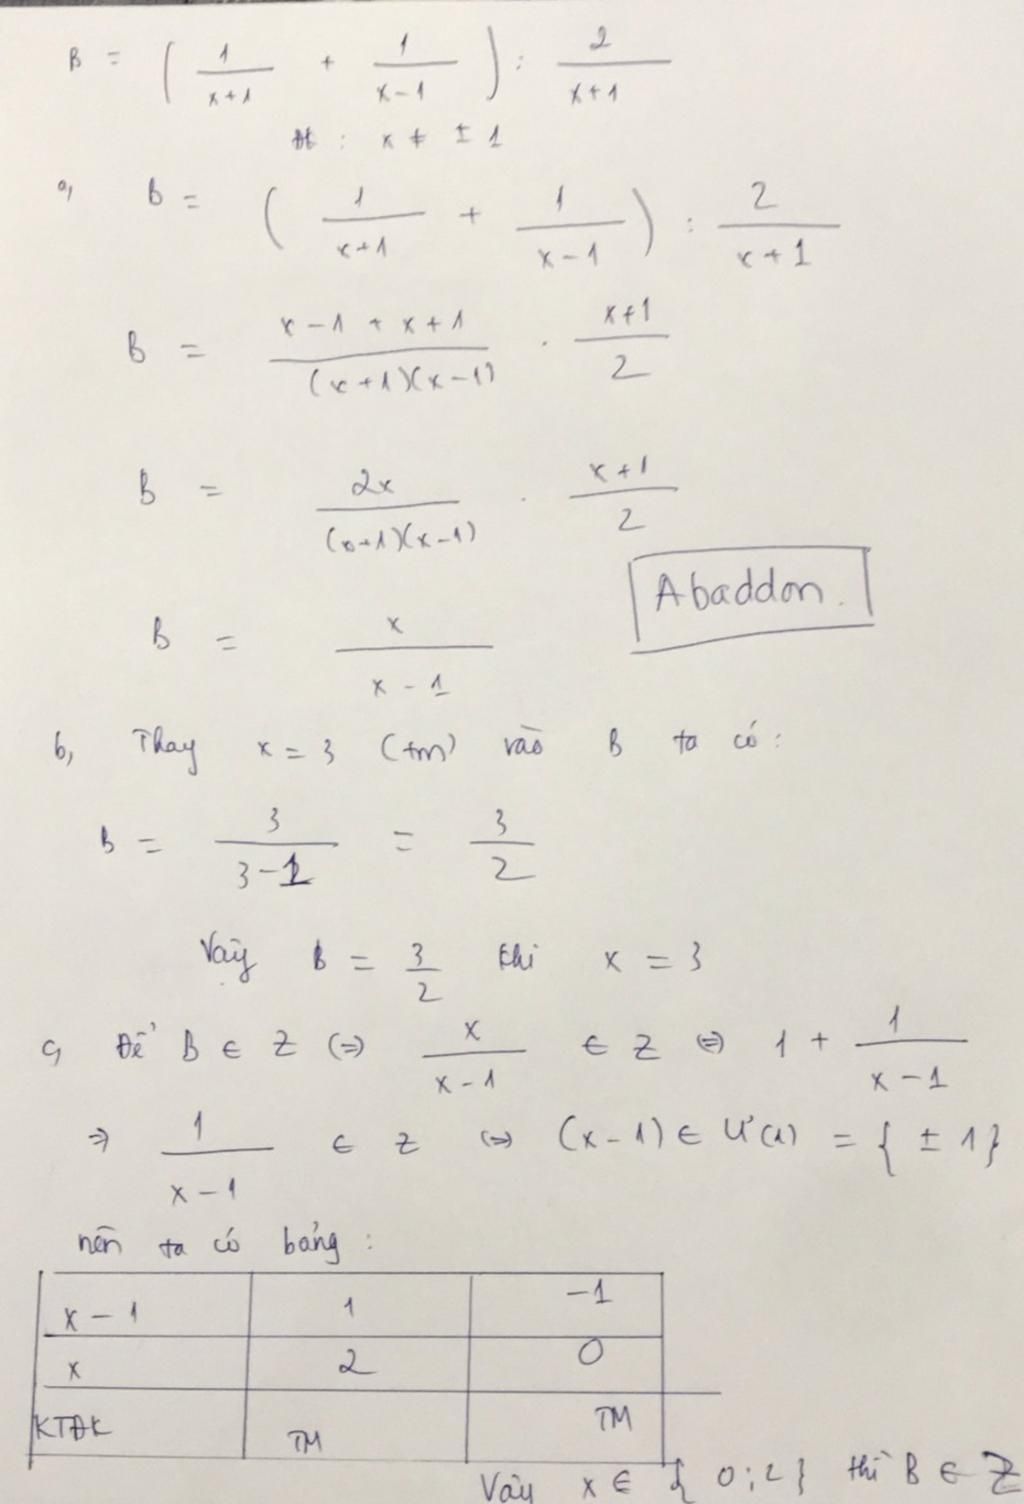 B = ( 1/(x+1) + 1/(x-1) ) : 2/(x+1)
Đk : x ≠ ± 1
a, B = ( 1/(x+1) + 1/(x-1) ) : 2/(x+1)
B = (x-1+x+1)/((x+1)(x-1)) . (x+1)/2
B = 2x/((x+1)(x-1)) . (x+1)/2
Abaddon.
B = x/(x-1)
b, Thay x = 3 (tm) vào B ta có :
B = 3/(3-1) = 3/2
Vậy B = 3/2 khi x = 3
c, Để B ∈ Z (=) x/(x-1) ∈ Z (=) 1 + 1/(x-1)
=> 1/(x-1) ∈ Z (=) (x-1) ∈ Ư(1) = { ± 1 }
nên ta có bảng :
x-1 1 -1
x 2 0
KTĐK TM TM
Vậy x ∈ { 0 ; 2 } thì B ∈ Z